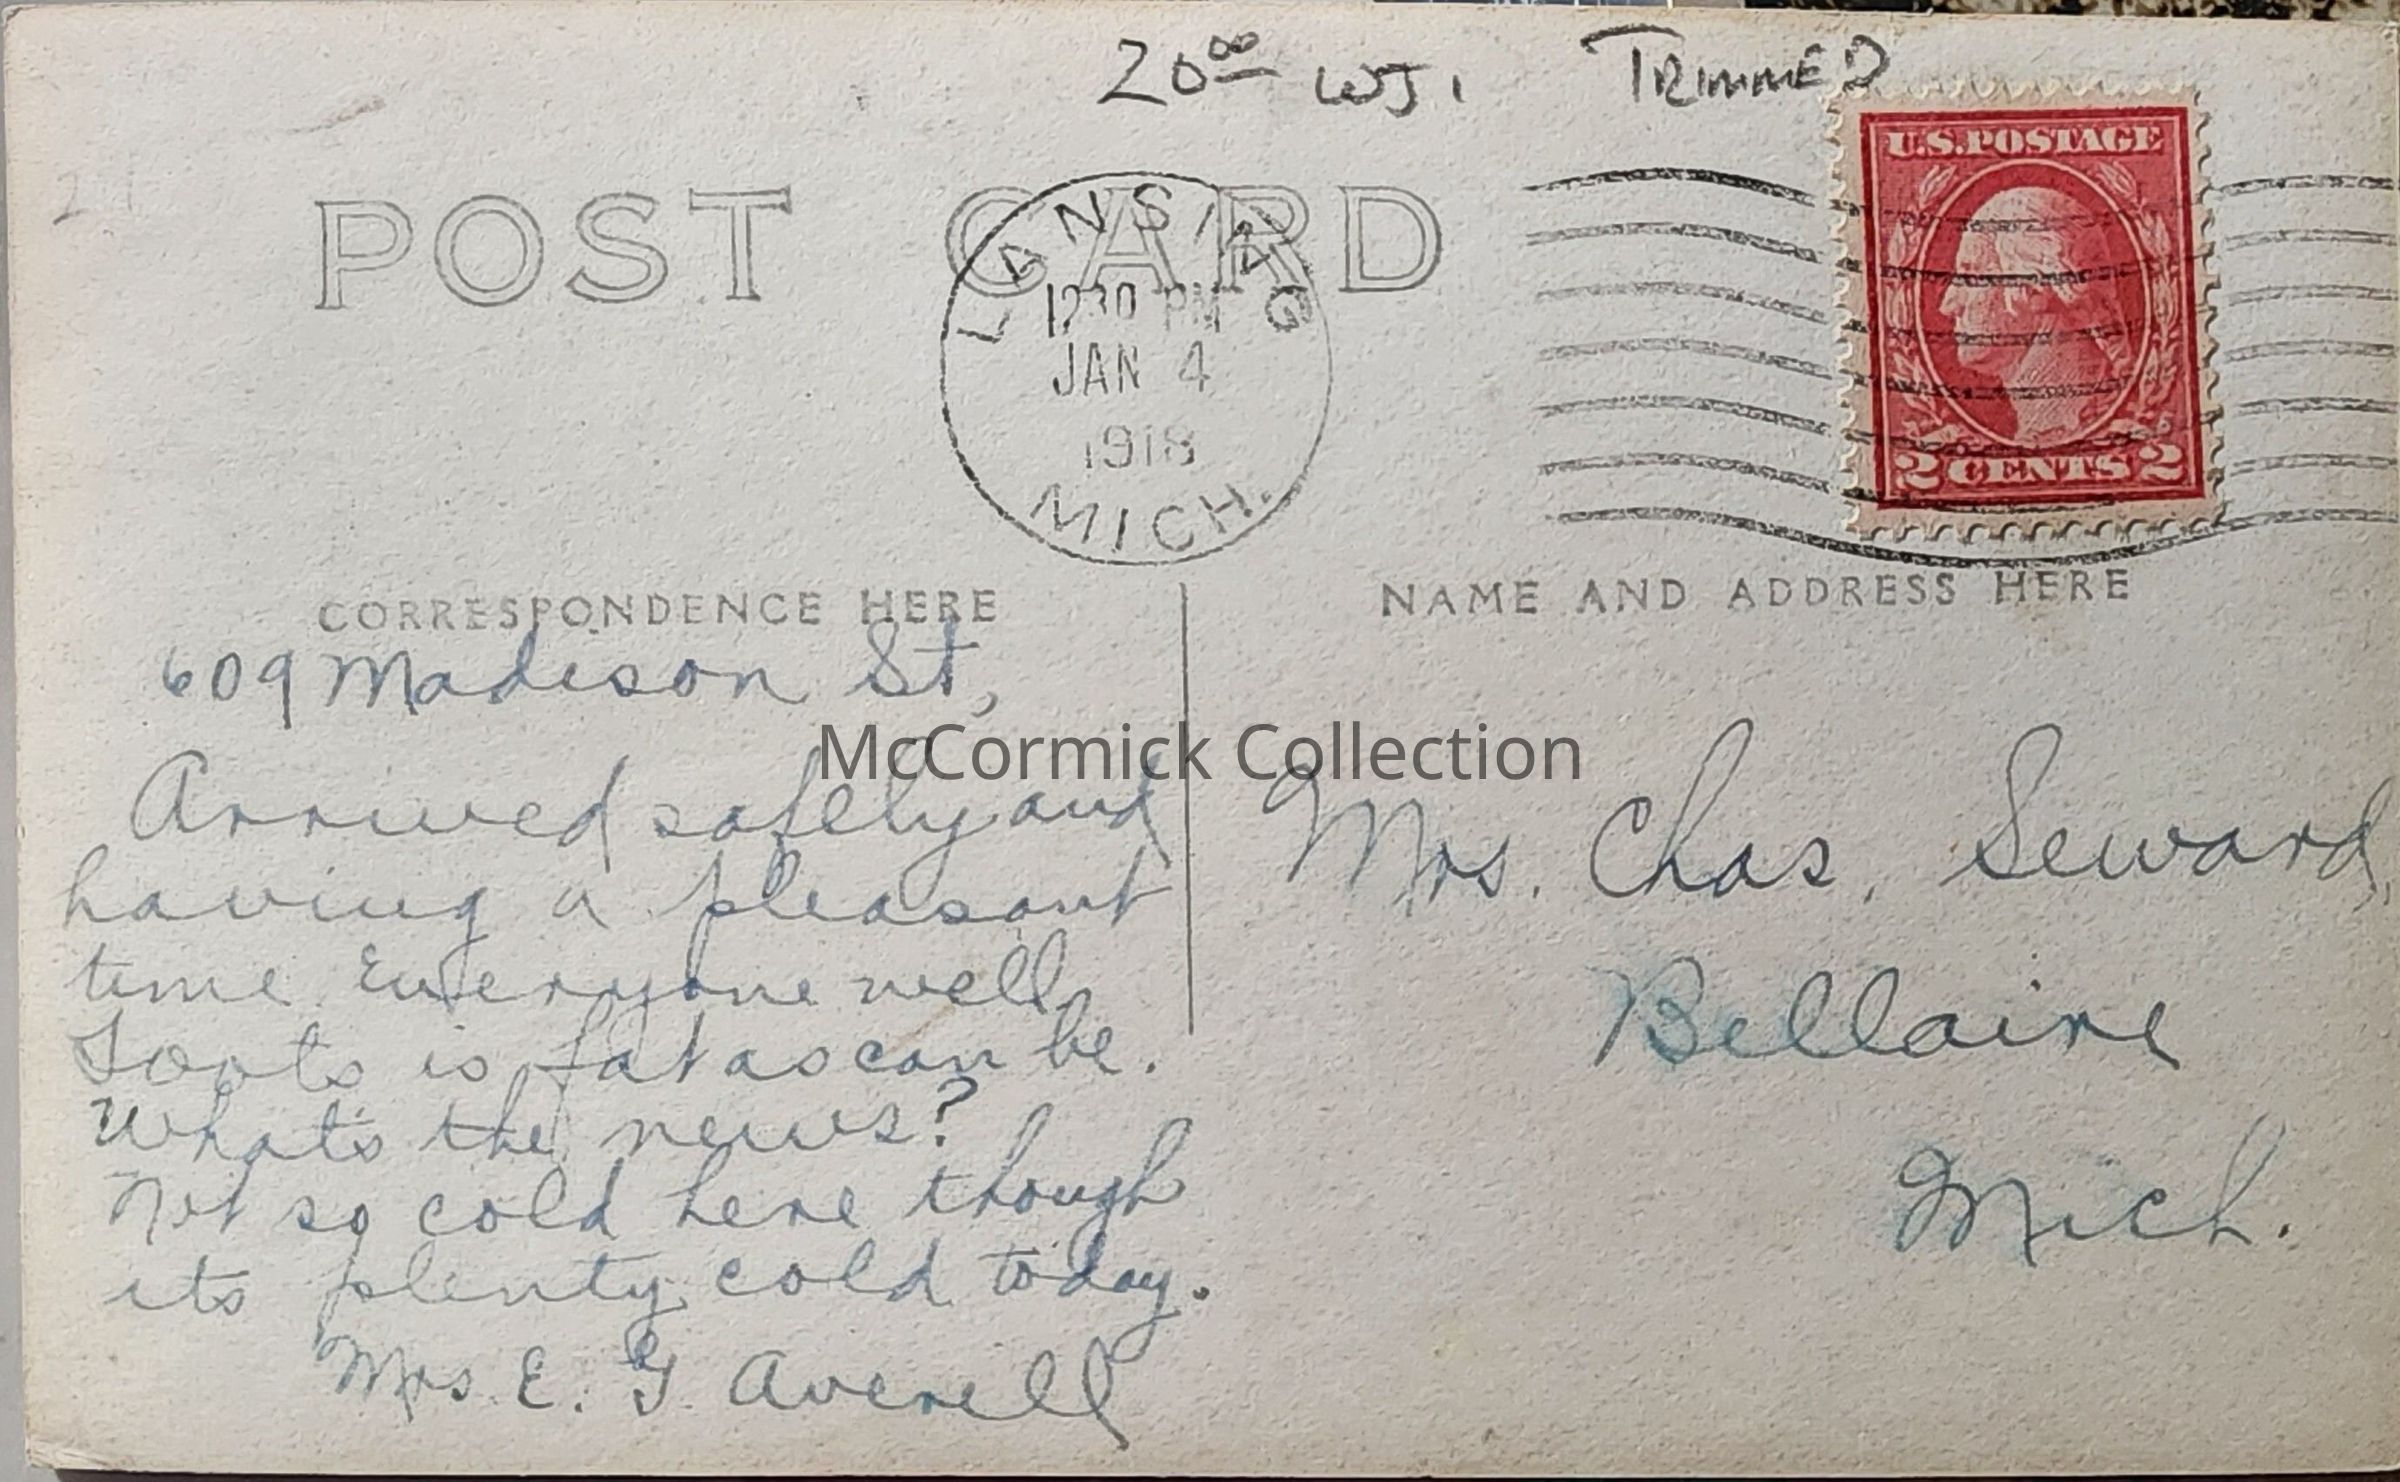 20⁰⁰ WJ. TRIMMED
POST CARD
LANSING
12 30 PM
JAN 4
1918
MICH.
U.S. POSTAGE
2 CENTS 2
CORRESPONDENCE HERE
609 Madison St,
Arrived safely and
having a pleasant
time. Everyone well
Toots is fat as can be.
Whats the news?
Not so cold here though
its plenty cold today.
Mrs E. G Averell
NAME AND ADDRESS HERE
Mrs. Chas. Seward,
Bellaire
Mich.
McCormick Collection